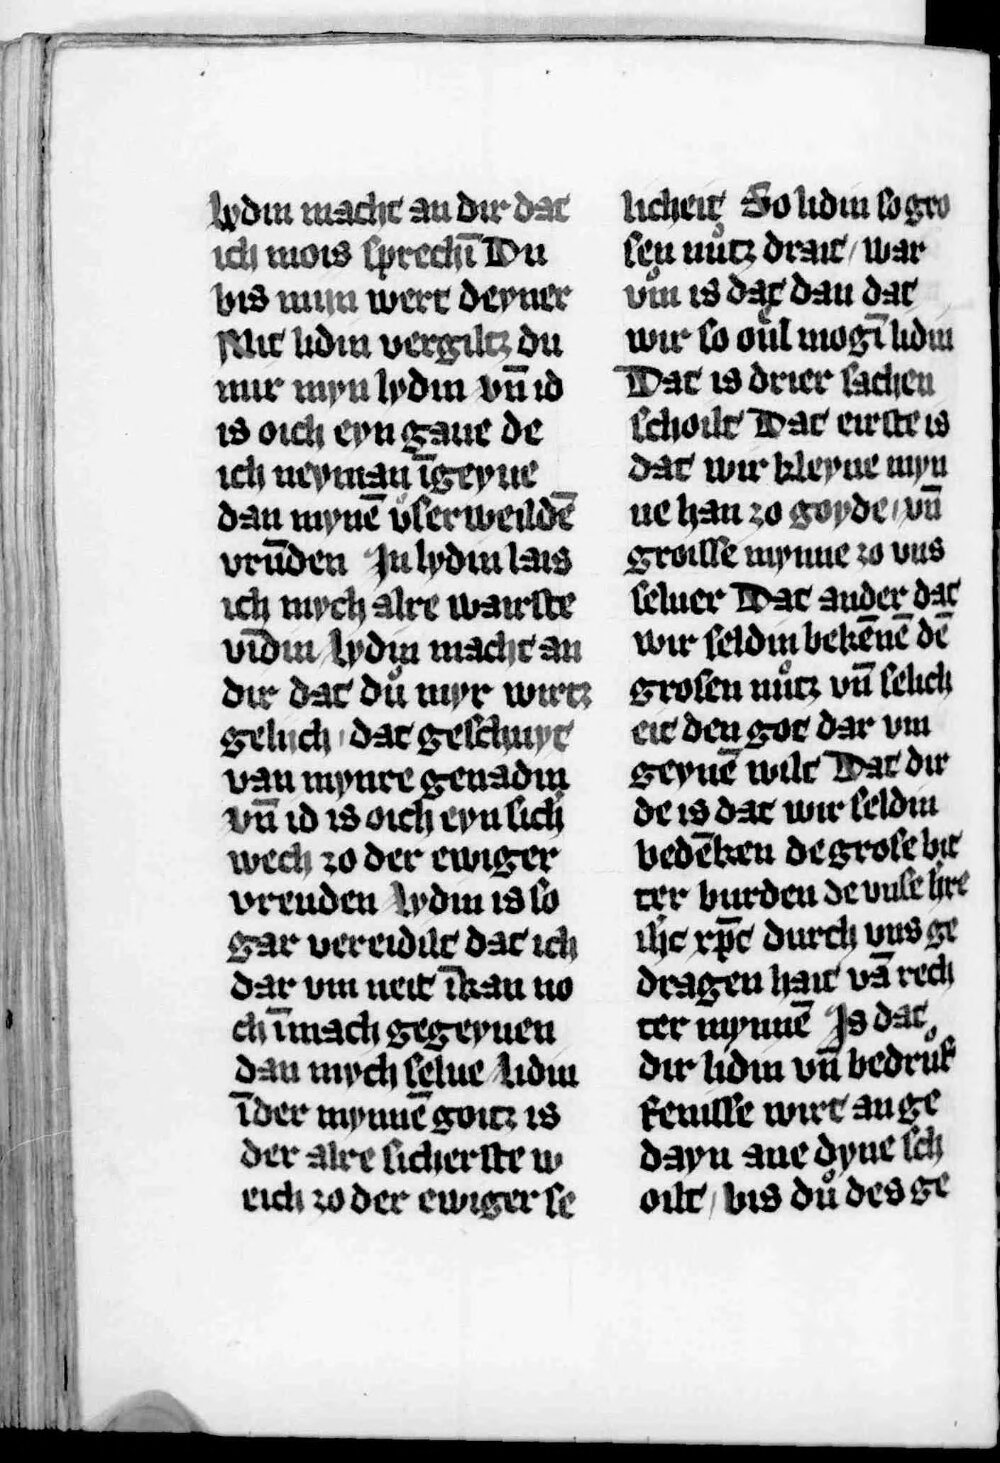 lydin macht an dir dat
ich mois sprechī Du
bis mijn wert deyner
Mit lidin vergiltz du
mir myn lydin vn̄ id
is oich eyn gaue de
ich neyman īgeyue
dan mynē vͦserweildē
vrūden In lydin lais
ich mych alre wairste
vīdin lydin macht an
dir dat duͦ myr wirtz
gelijch dat geschuyt
van mynre genadin
vn̄ id is oich eyn sich
wech zo der ewiger
vreuden lydin is so
gar vereidilt dat ich
dar vm neit īkan no
ch īmach gegeyuen
dan mych selue lidin
īder mynnē gotz is
der alre sicherste w
eich zo der ewiger se
licheit So lidin so gro
sen nuͦtz drait / war
vͦm is dat dan dat
wir so oͮuil mogī lidin
Dat is drier sachen
schoilt Dat eirste is
dat wir kleyne myn
ne han zo goyde / vn̄
groisse mynne zo vns
seluer Dat ander dat
wir seldin bekēnē dē
grosen nuͦtz vn̄ selich
eit den got dar vm
geynē wilt Dat dir
de is dat wir seldin
bedēken de grose bit
ter burden de vnse hre
ihc xp̄c durch vns ge
dragen hait vā rech
ter mynnē Is dat
dir lidin vn̄ bedruͦk
kenisse wirt an ge
dayn ane dyne sch
oilt / bis duͦ des ge